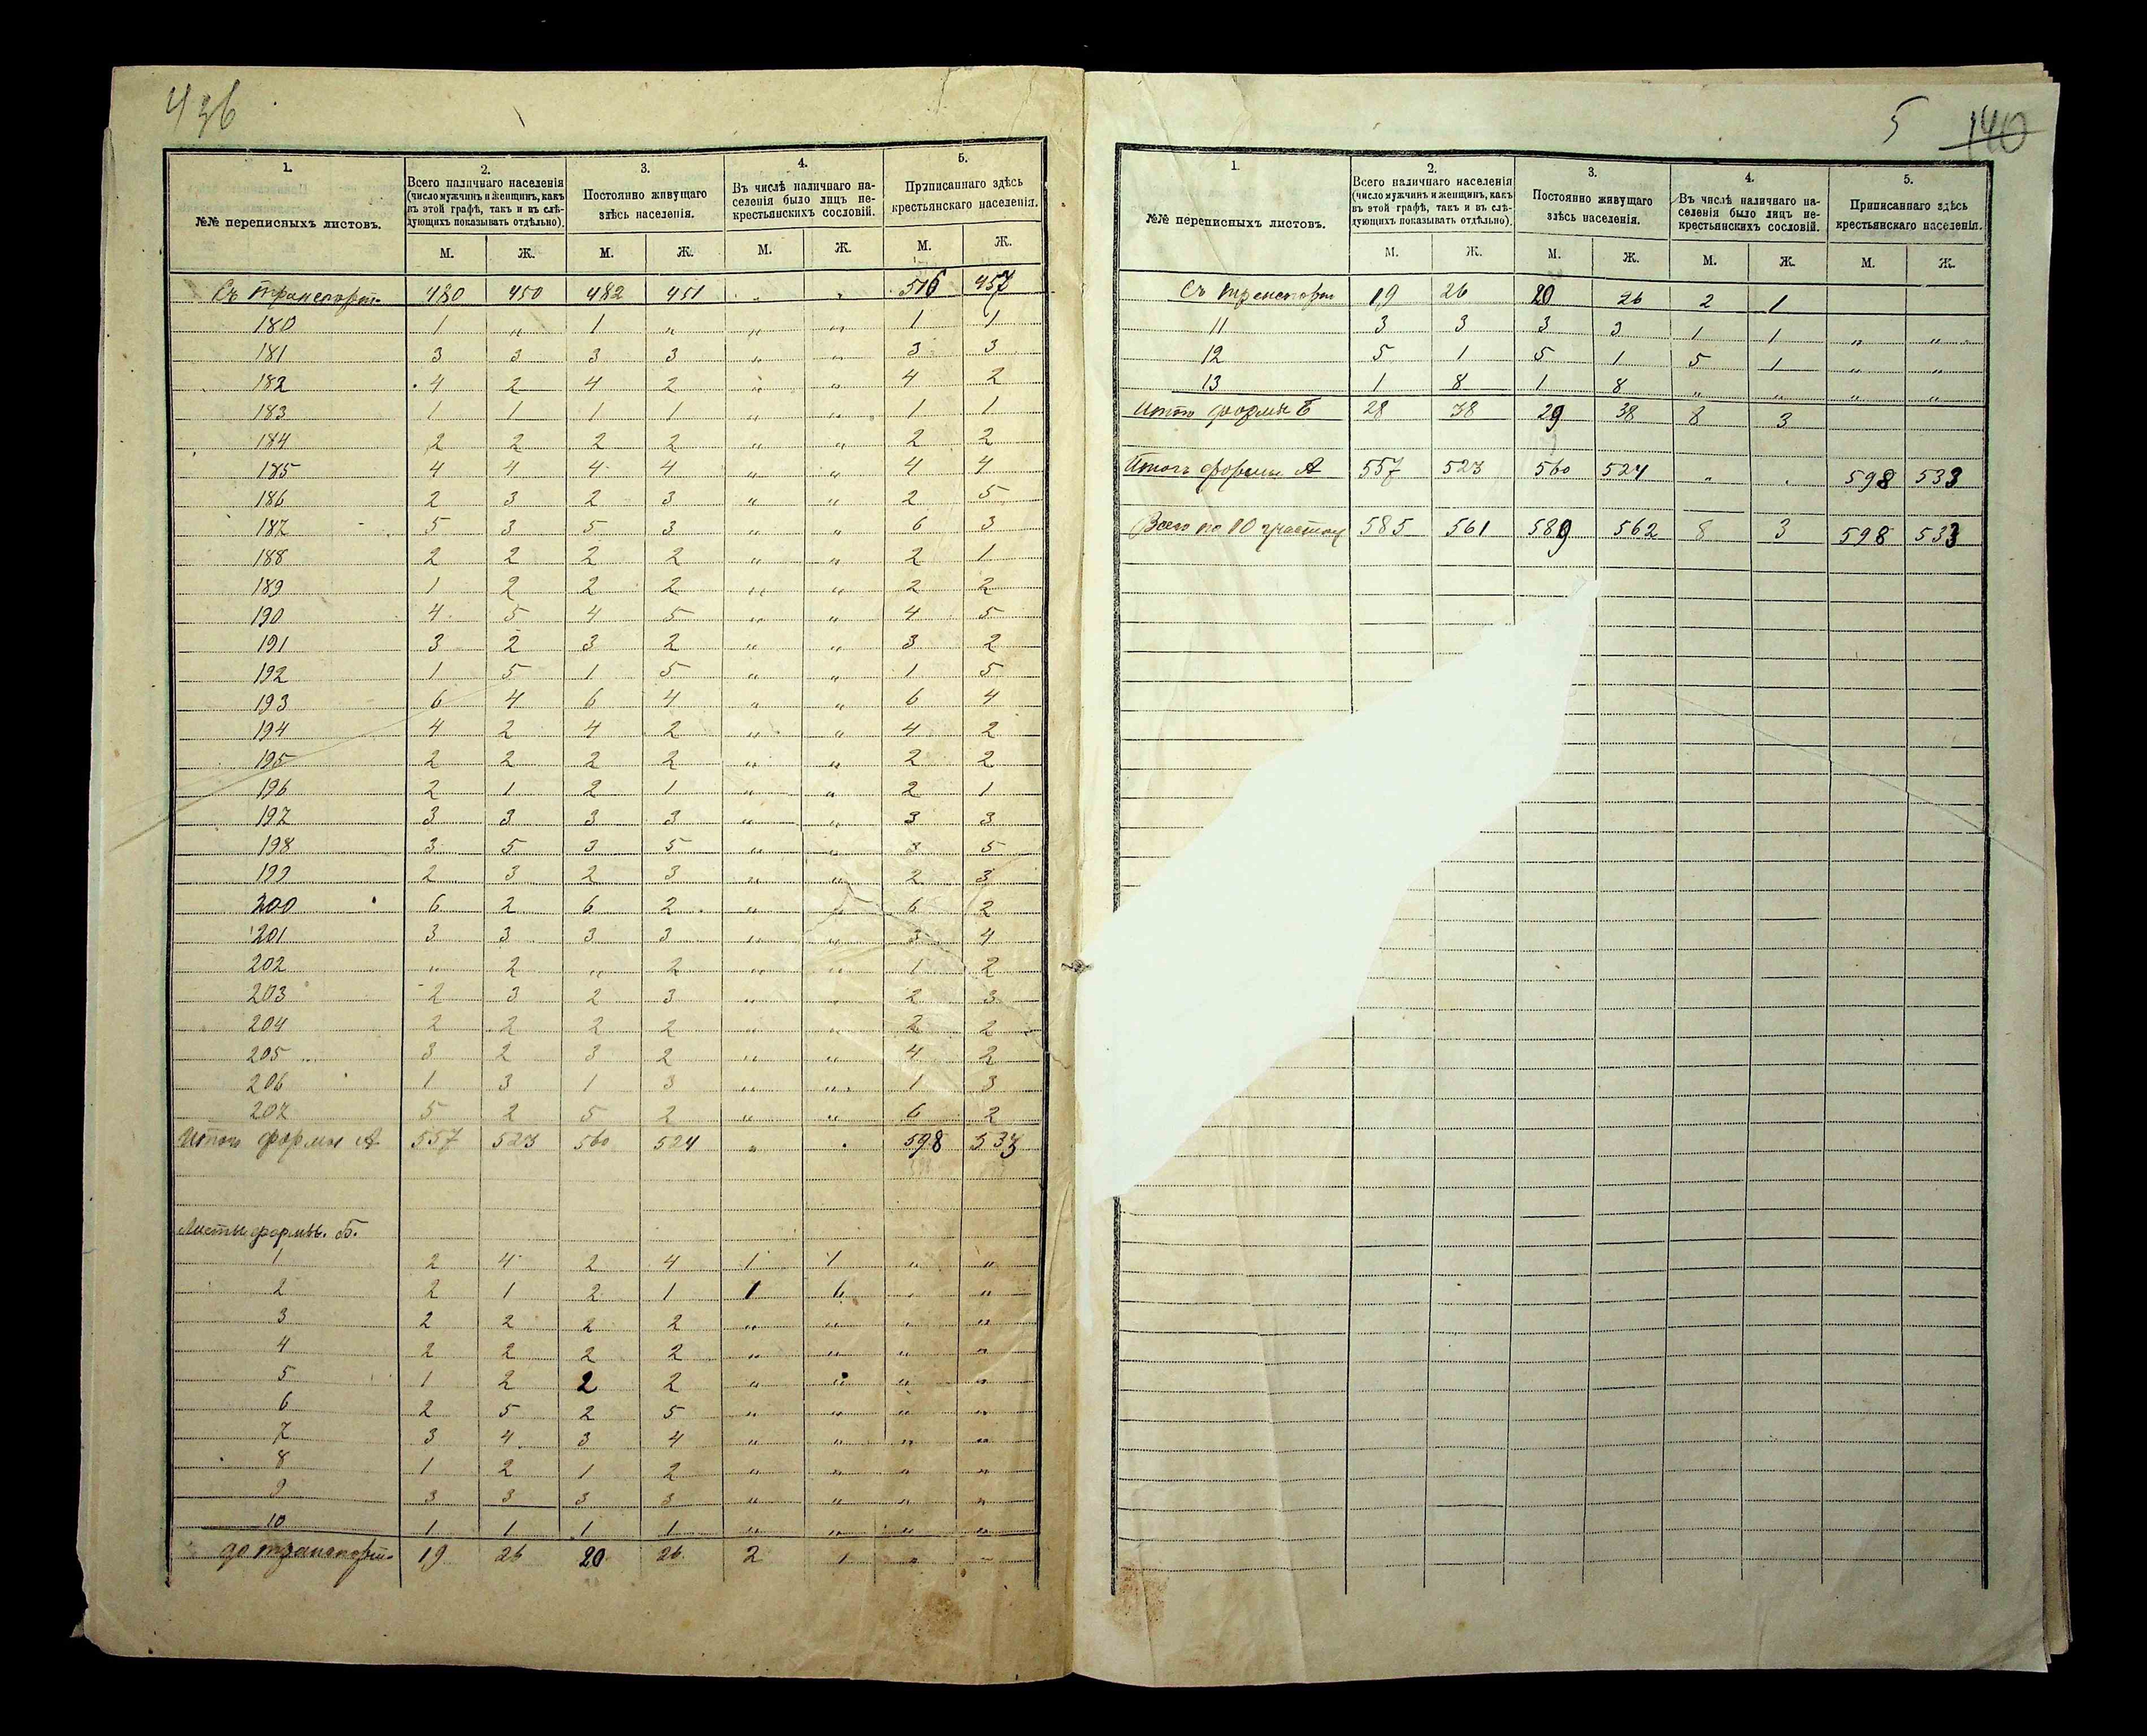 436
1. 2. 3. 4. 5.
№№ переписныхъ листовъ. Всего наличнаго населенія (число мужчинъ и женщинъ, какъ въ этой графѣ, такъ и въ слѣдующихъ показывать отдѣльно). Постоянно живущаго здѣсь населенія. Въ числѣ наличнаго населенія было лицъ некрестьянскихъ сословій. Приписаннаго здѣсь крестьянскаго населенія.
М. Ж. М. Ж. М. Ж. М. Ж.
Съ транспорт. 480 450 482 451 „ „ 516 457
180 1 „ 1 „ „ „ 1 1
181 3 3 3 3 „ „ 3 3
182 4 2 4 2 „ „ 4 2
183 1 1 1 1 „ „ 1 1
184 2 2 2 2 „ „ 2 2
185 4 4 4 4 „ „ 4 4
186 2 3 2 3 „ „ 2 5
187 5 3 5 3 „ „ 6 3
188 2 2 2 2 „ „ 2 1
189 1 2 2 2 „ „ 2 2
190 4 5 4 5 „ „ 4 5
191 3 2 3 2 „ „ 3 2
192 1 5 1 5 „ „ 1 5
193 6 4 6 4 „ „ 6 4
194 4 2 4 2 „ „ 4 2
195 2 2 2 2 „ „ 2 2
196 2 1 2 1 „ „ 2 1
197 3 3 3 3 „ „ 3 3
198 3 5 3 5 „ „ 3 5
199 2 3 2 3 „ „ 2 3
200 6 2 6 2 „ „ 6 2
201 3 3 3 3 „ „ 3 4
202 „ 2 „ 2 „ „ 1 2
203 2 3 2 3 „ „ 2 3
204 2 2 2 2 „ „ 2 2
205 3 2 3 2 „ „ 4 2
206 1 3 1 3 „ „ 1 3
207 5 2 5 2 „ „ 6 2
Итого формы А 557 523 560 524 „ . 598 533
Листы формы. Б.
1 2 4 2 4 1 1 „ „
2 2 1 2 1 1 „ „
3 2 2 2 2 „ „ „ „
4 2 2 2 2 „ „ „ „
5 1 2 2 2 „ „ „ „
6 2 5 2 5 „ „ „ „
7 3 4 3 4 „ „ „ „
8 1 2 1 2 „ „ „ „
9 3 3 3 3 „ „ „ „
10 1 1 1 1 „ „ „ „
до транспорт. 19 26 20 26 2 1 „ –
5 140
1. 2. 3. 4. 5.
№№ переписныхъ листовъ. Всего наличнаго населенія (число мужчинъ и женщинъ, какъ въ этой графѣ, такъ и въ слѣдующихъ показывать отдѣльно). Постоянно живущаго здѣсь населенія. Въ числѣ наличнаго населенія было лицъ некрестьянскихъ сословій. Приписаннаго здѣсь крестьянскаго населенія.
М. Ж. М. Ж. М. Ж. М. Ж.
Съ транспорт 19 26 20 26 2 1
11 3 3 3 3 1 1 „ „
12 5 1 5 1 5 1 „ „
13 1 8 1 8 „ „ „ „
Итого формы Б 28 38 29 38 8 3
Итого формы А 557 523 560 524 „ . 598 533
Всего по 10 участку 585 561 589 562 8 3 598 533